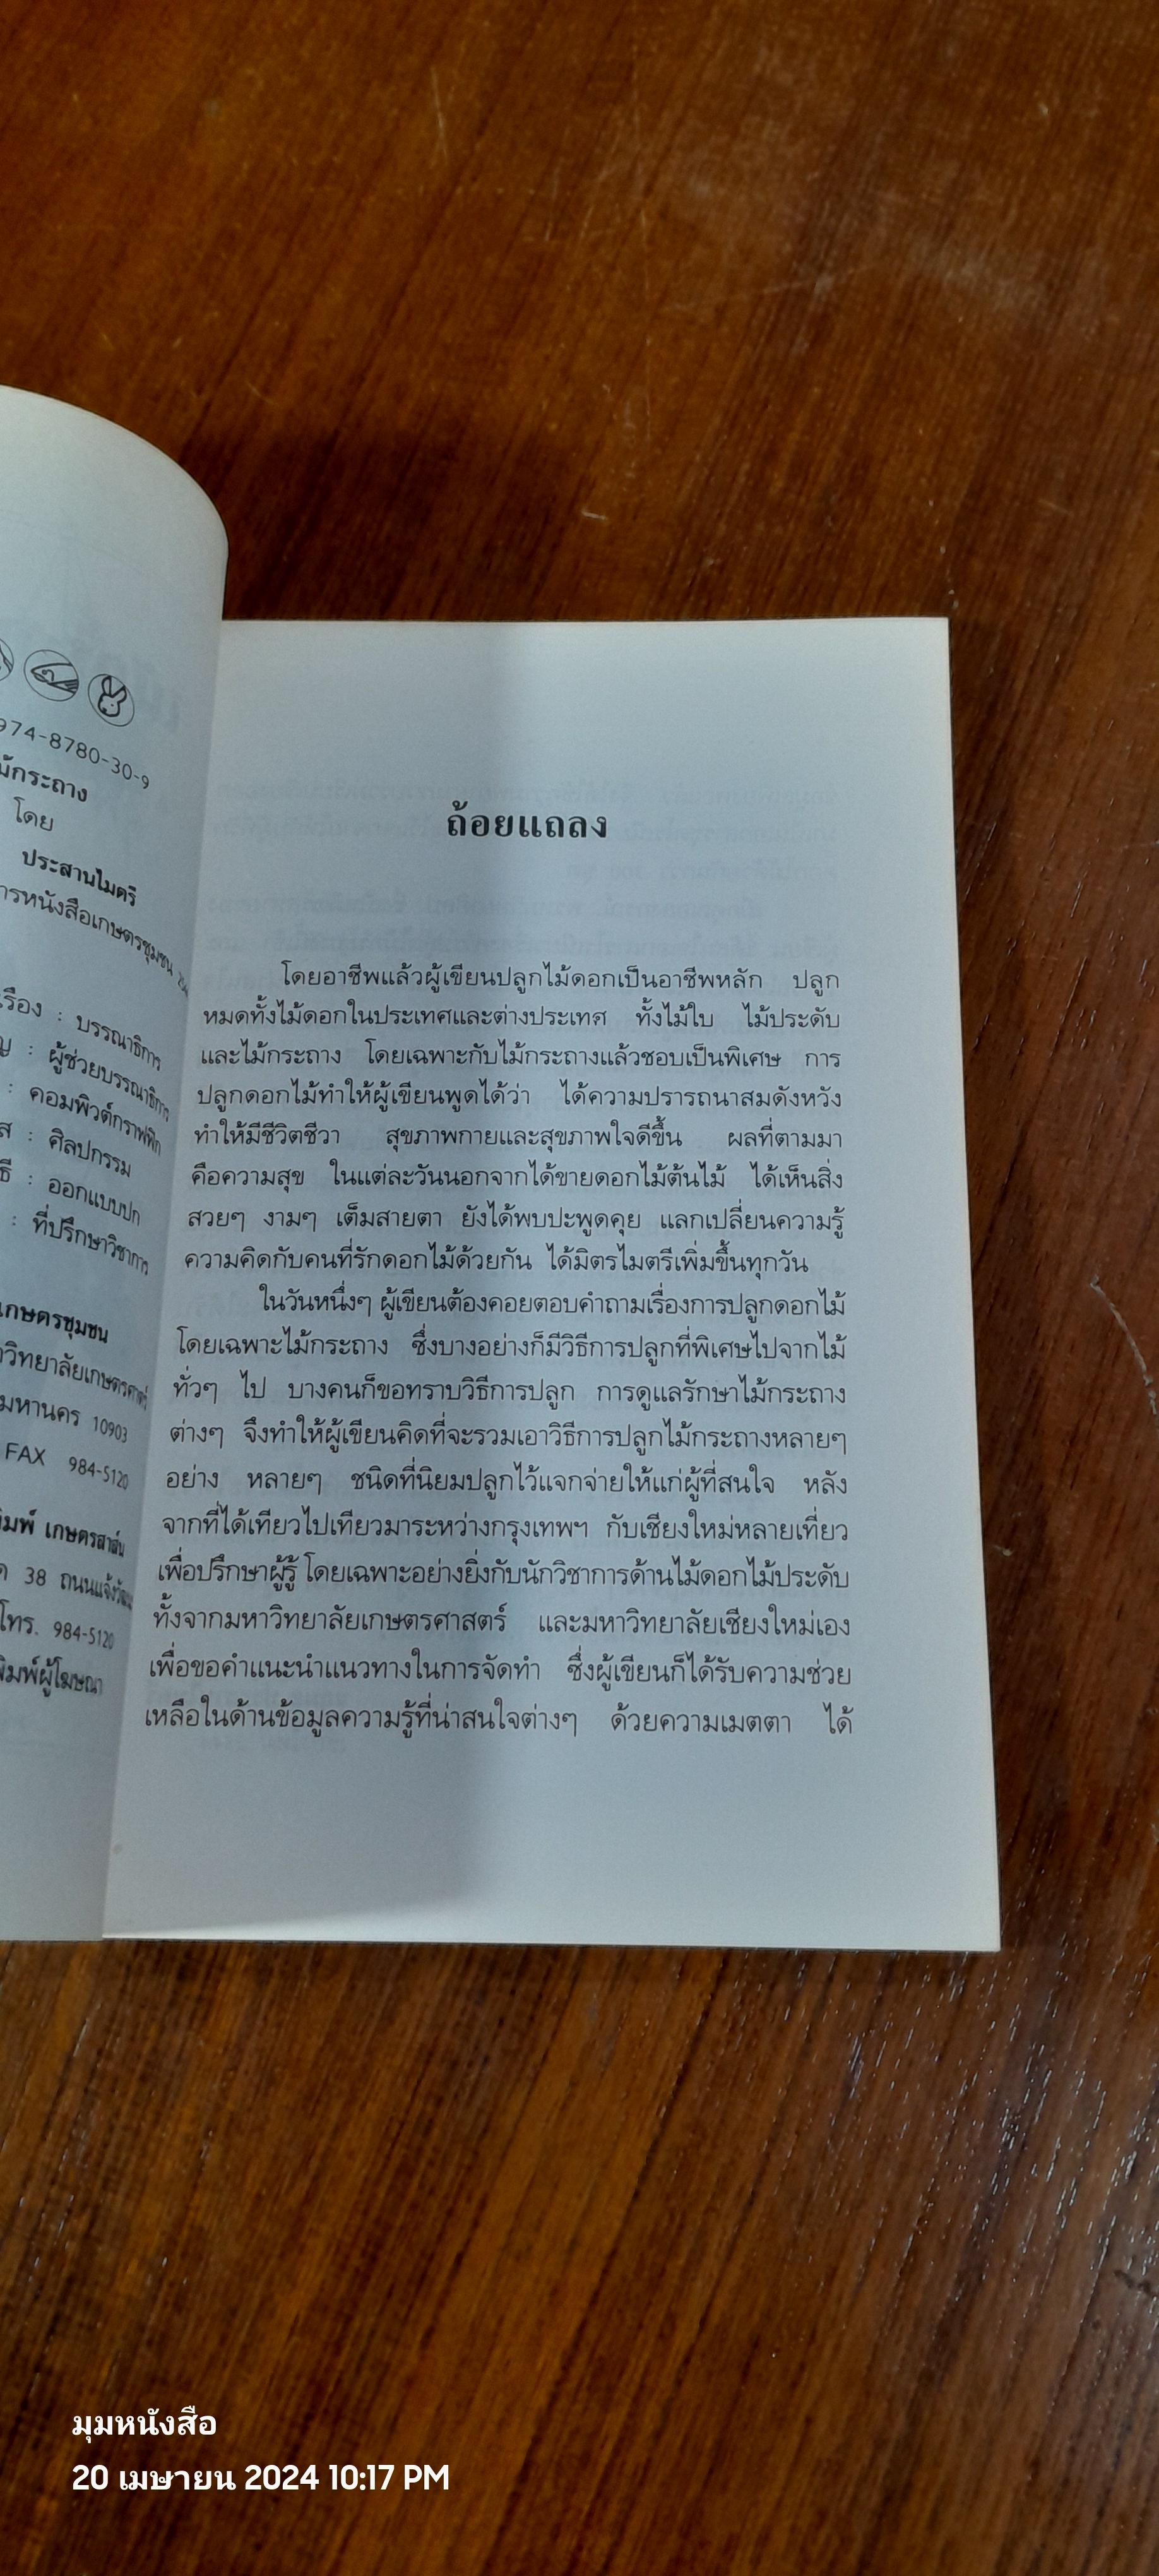 974-8780-30-9
ม้กระถาง
โดย
ประสานไมตรี
ารหนังสือเกษตรชุมชน
เรื่อง : บรรณาธิการ
ญ : ผู้ช่วยบรรณาธิการ
: คอมพิวต์กราฟฟิก
ส : ศิลปกรรม
ธี : ออกแบบปก
: ที่ปรึกษาวิชาการ
เกษตรชุมชน
าวิทยาลัยเกษตรศาสตร์
มหานคร 10903
FAX 984-5120
พิมพ์ เกษตรสาส์น
ค 38 ถนนแจ้งวัฒนะ
โทร. 984-5120
พิมพ์ผู้โฆษณา
ถ้อยแถลง
โดยอาชีพแล้วผู้เขียนปลูกไม้ดอกเป็นอาชีพหลัก ปลูก
หมดทั้งไม้ดอกในประเทศและต่างประเทศ ทั้งไม้ใบ ไม้ประดับ
และไม้กระถาง โดยเฉพาะกับไม้กระถางแล้วชอบเป็นพิเศษ การ
ปลูกดอกไม้ทำให้ผู้เขียนพูดได้ว่า ได้ความปรารถนาสมดังหวัง
ทำให้มีชีวิตชีวา สุขภาพกายและสุขภาพใจดีขึ้น ผลที่ตามมา
คือความสุข ในแต่ละวันนอกจากได้ขายดอกไม้ต้นไม้ ได้เห็นสิ่ง
สวยๆ งามๆ เต็มสายตา ยังได้พบปะพูดคุย แลกเปลี่ยนความรู้
ความคิดกับคนที่รักดอกไม้ด้วยกัน ได้มิตรไมตรีเพิ่มขึ้นทุกวัน
ในวันหนึ่งๆ ผู้เขียนต้องคอยตอบคำถามเรื่องการปลูกดอกไม้
โดยเฉพาะไม้กระถาง ซึ่งบางอย่างก็มีวิธีการปลูกที่พิเศษไปจากไม้
ทั่วๆ ไป บางคนก็ขอทราบวิธีการปลูก การดูแลรักษาไม้กระถาง
ต่างๆ จึงทำให้ผู้เขียนคิดที่จะรวมเอาวิธีการปลูกไม้กระถางหลายๆ
อย่าง หลายๆ ชนิดที่นิยมปลูกไว้แจกจ่ายให้แก่ผู้ที่สนใจ หลัง
จากที่ได้เทียวไปเทียวมาระหว่างกรุงเทพฯ กับเชียงใหม่หลายเที่ยว
เพื่อปรึกษาผู้รู้ โดยเฉพาะอย่างยิ่งกับนักวิชาการด้านไม้ดอกไม้ประดับ
ทั้งจากมหาวิทยาลัยเกษตรศาสตร์ และมหาวิทยาลัยเชียงใหม่เอง
เพื่อขอคำแนะนำแนวทางในการจัดทำ ซึ่งผู้เขียนก็ได้รับความช่วย
เหลือในด้านข้อมูลความรู้ที่น่าสนใจต่างๆ ด้วยความเมตตา ได้
มุมหนังสือ
20 เมษายน 2024 10:17 PM